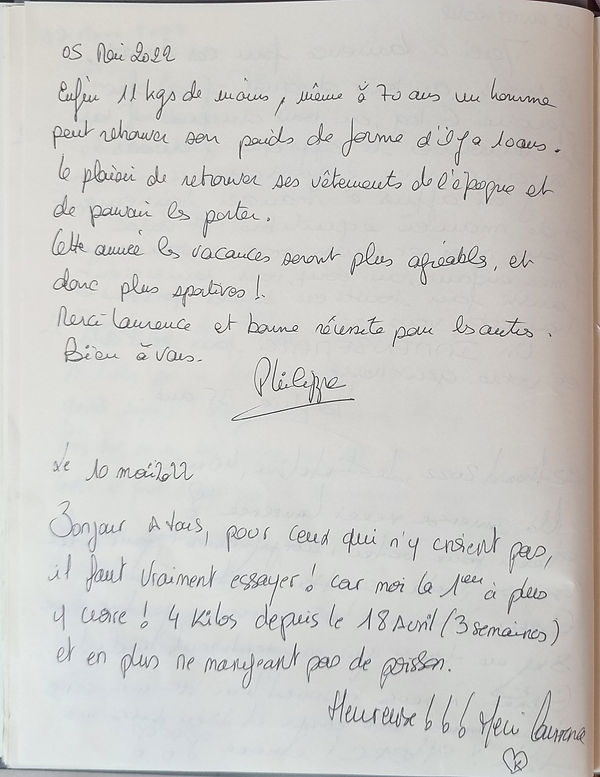 05 Mai 2022
Enfin 11 kgs de moins, même à 70 ans un homme
peut retrouver son poids de forme d'il y a 10 ans.
Le plaisir de retrouver ses vêtements de l'époque et
de pouvoir les porter.
Cette année les vacances seront plus agréables, et
donc plus sportives !.
Merci Laurence et bonne réussite pour les autres.
Bien à vous.
Philippe
Le 10 mai 2022
Bonjour A tous, pour ceux qui n'y croient pas,
il faut vraiment essayer ! car moi la 1ère à plus
y croire ! 4 Kilos depuis le 18 Avril (3 semaines)
et en plus ne mangeant pas de poisson.
Heureuse Merci Laurence